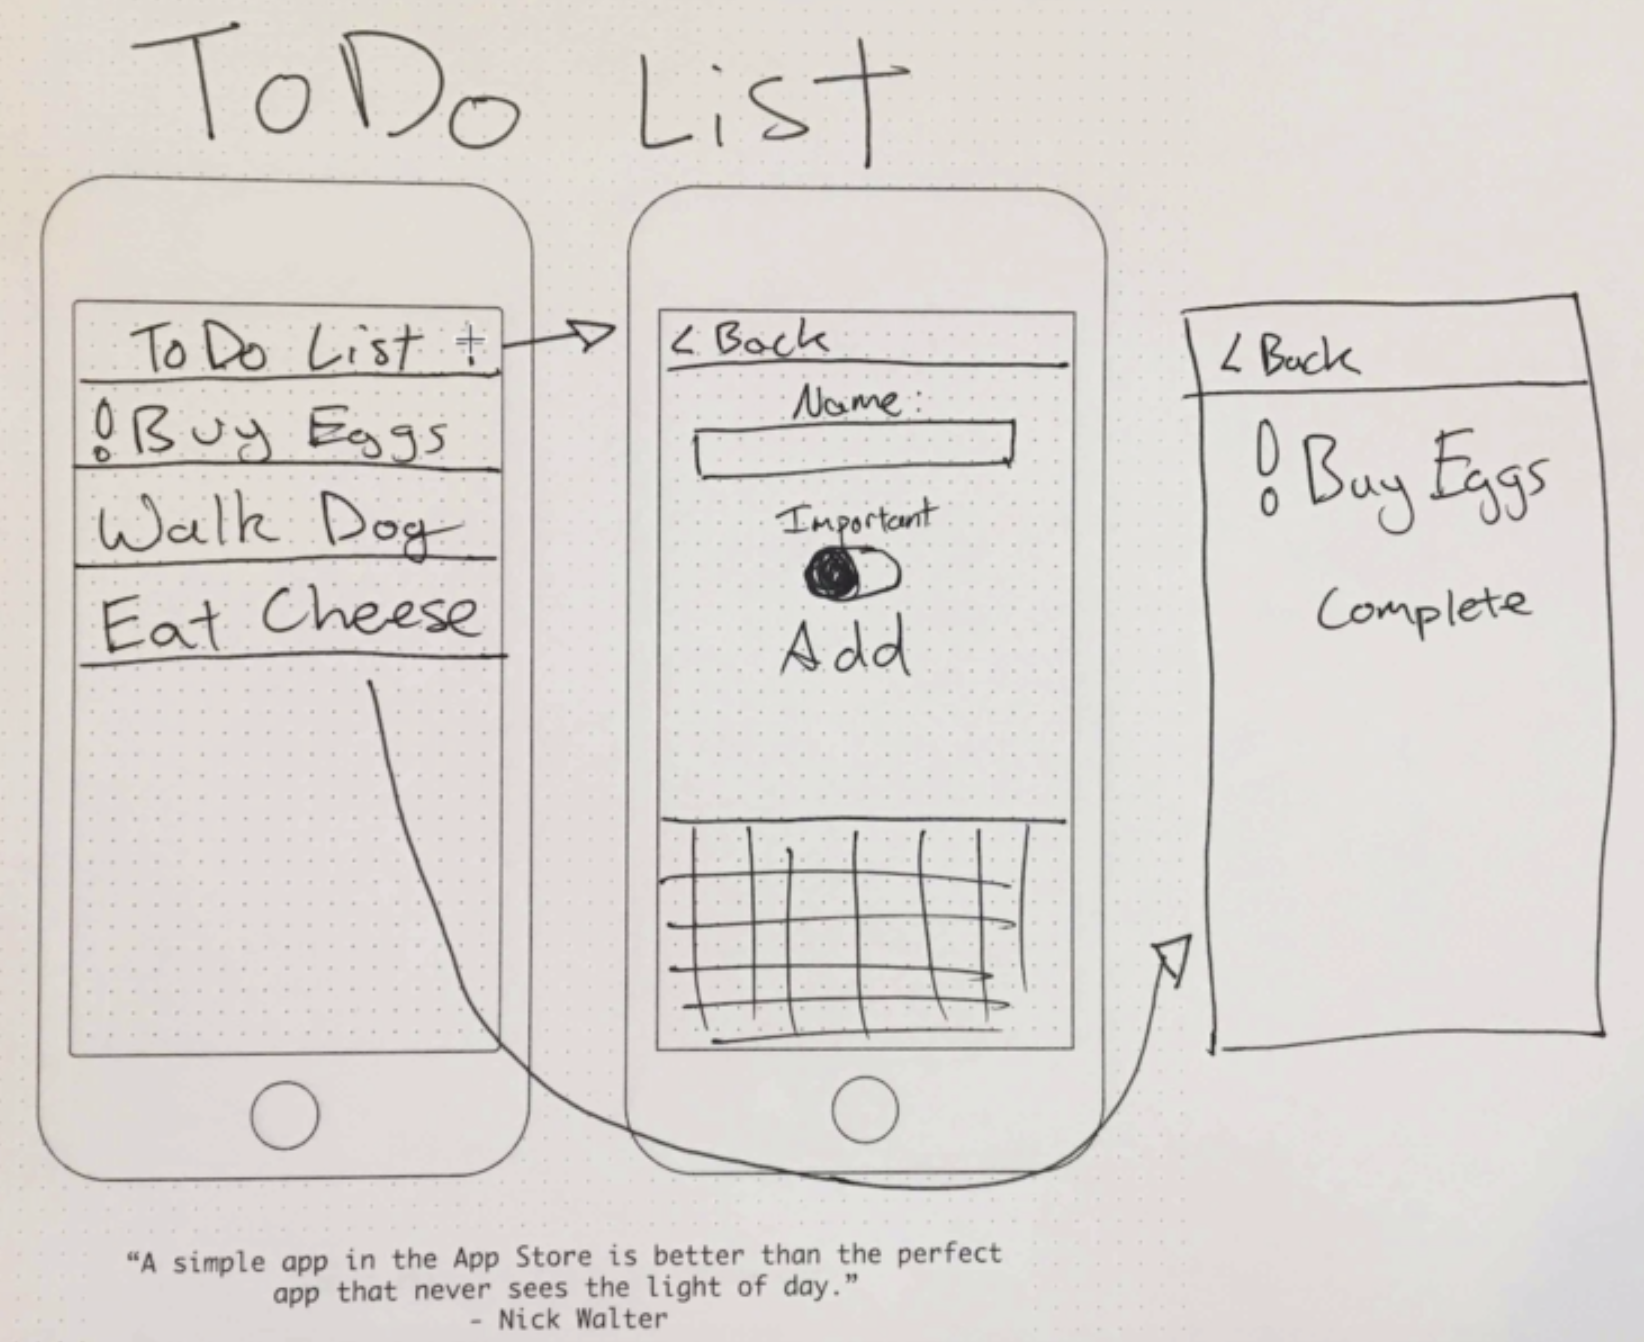 ToDo List
ToDo List +
! Buy Eggs
Walk Dog
Eat Cheese
< Back
Name:
Important
Add
< Back
! Buy Eggs
Complete
“A simple app in the App Store is better than the perfect
app that never sees the light of day.”
- Nick Walter